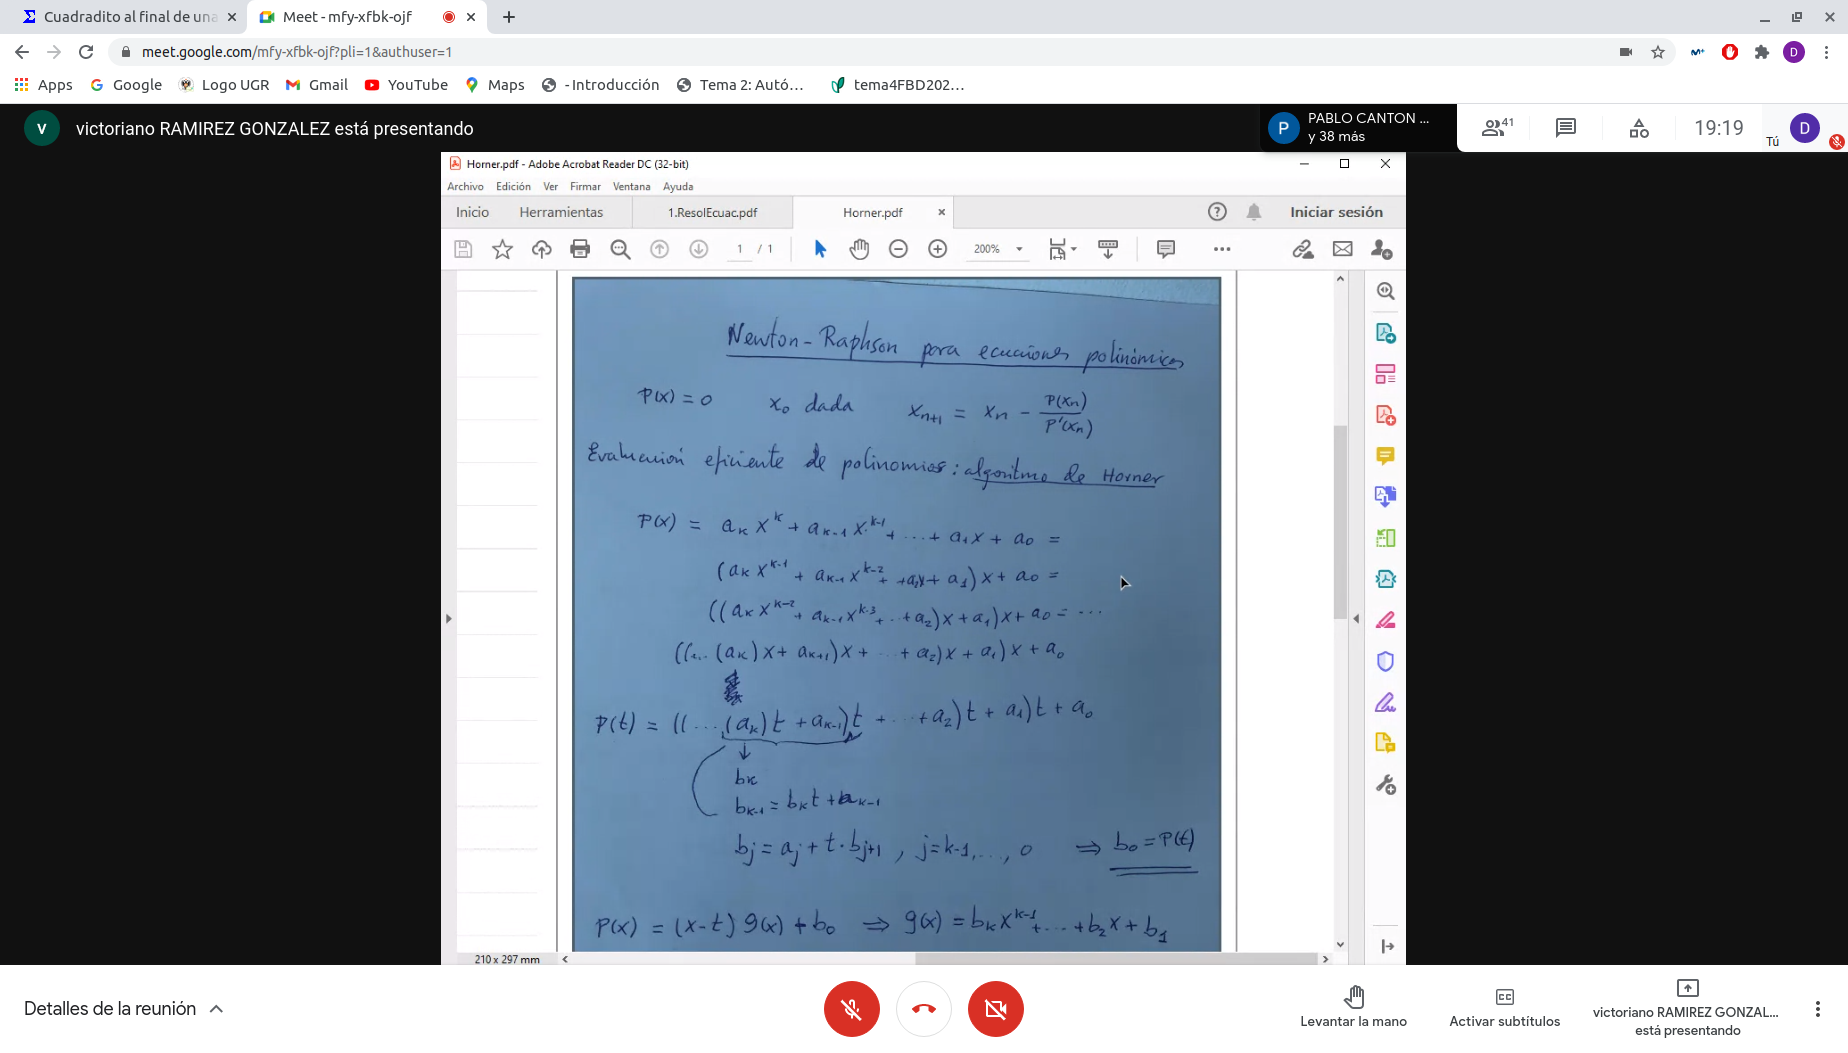 Cuadradito al final de una
Meet - mfy-xfbk-ojf
meet.google.com/mfy-xfbk-ojf?pli=1&authuser=1
Apps Google Logo UGR Gmail YouTube Maps - Introducción Tema 2: Autó... tema4FBD202...
V victoriano RAMIREZ GONZALEZ está presentando
P PABLO CANTON ...
y 38 más
41
19:19
Tú
D
Horner.pdf - Adobe Acrobat Reader DC (32-bit)
Archivo Edición Ver Firmar Ventana Ayuda
Inicio Herramientas 1.ResolEcuac.pdf Horner.pdf Iniciar sesión
1 / 1 200%
Newton-Raphson para ecuaciones polinómicas
P(x) = 0 x₀ dada xₙ₊₁ = xₙ - P(xₙ)/P'(xₙ)
Evaluación eficiente de polinomios: algoritmo de Horner
P(x) = aₖ x^k + aₖ₋₁ x^(k-1) + ... + a₁x + a₀ =
(aₖ x^(k-1) + aₖ₋₁ x^(k-2) + + a₂x + a₁) x + a₀ =
((aₖ x^(k-2) + aₖ₋₁ x^(k-3) + ... + a₂)x + a₁)x + a₀ = ...
((... (aₖ) x + aₖ₊₁)x + ... + a₂)x + a₁)x + a₀
P(t) = ((... (aₖ)t + aₖ₋₁)t + ... + a₂)t + a₁)t + a₀
↓
bₖ
bₖ₋₁ = bₖt + aₖ₋₁
bⱼ = aⱼ + t·bⱼ₊₁ , j = k-1, ..., 0 ⇒ b₀ = P(t)
P(x) = (x-t) g(x) + b₀ ⇒ g(x) = bₖx^(k-1) + ... + b₂x + b₁
210 x 297 mm
Detalles de la reunión
Levantar la mano
Activar subtítulos
victoriano RAMIREZ GONZAL...
está presentando